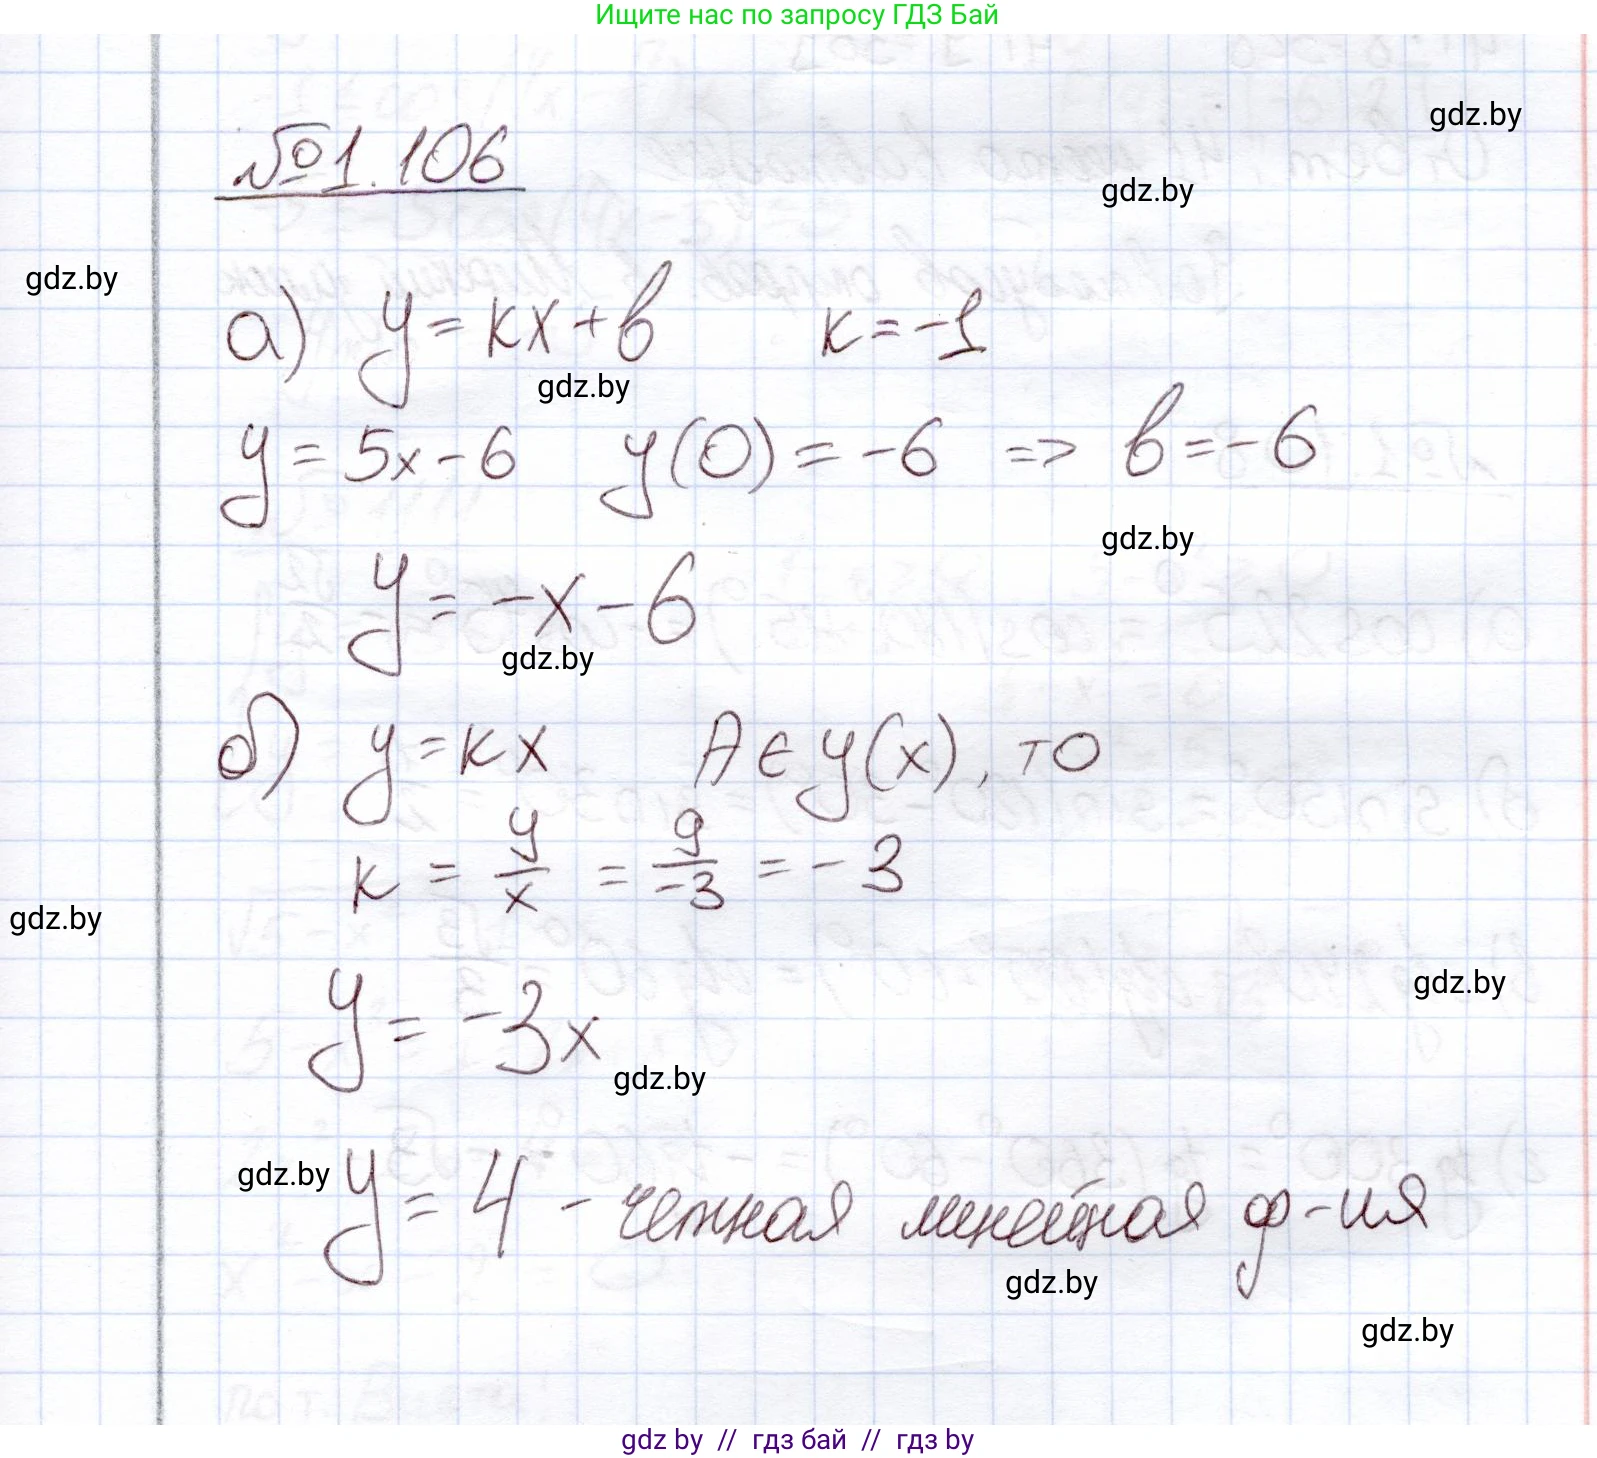 Ищите нас по запросу ГДЗ Бай
gdz.by
№1.106
gdz.by
gdz.by
а) y = kx + b k = -1
gdz.by
y = 5x - 6 y(0) = -6 => b = -6
gdz.by
y = -x - 6
gdz.by
б) y = kx A ∈ y(x), то
k = y/x = 9/-3 = -3
gdz.by
gdz.by
y = -3x
gdz.by
gdz.by
y = 4 - четная линейная ф-ия
gdz.by
gdz.by
gdz by // гдз бай // гдз by